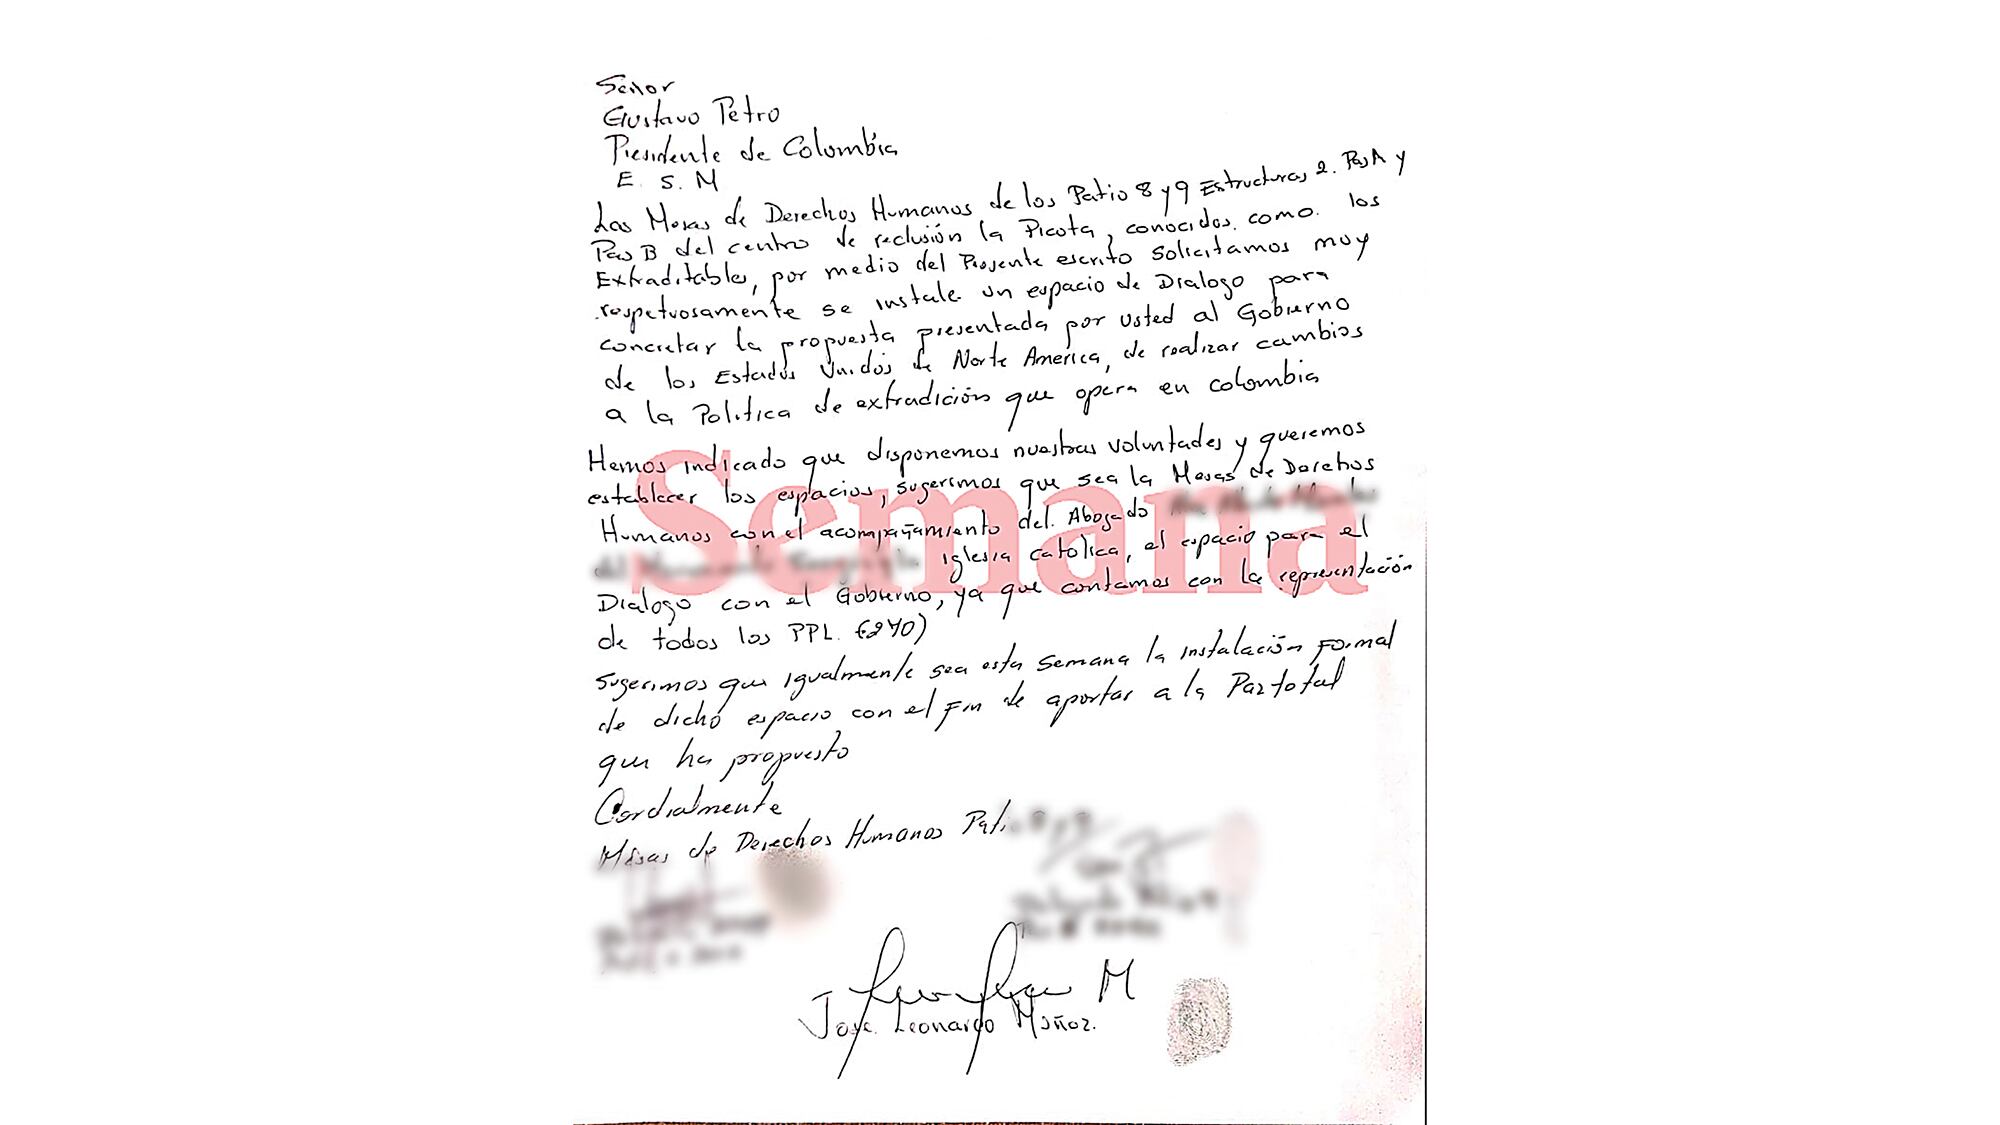 Señor
Gustavo Petro
Presidente de Colombia
E. S. M
Las Mesas de Derechos Humanos de los Patio 8 y 9 Estructuras 2. Pas A y
Pas B del centro de reclusión la Picota, conocidos como los
Extraditables, por medio del Presente escrito solicitamos muy
respetuosamente se instale un espacio de Dialogo para
concretar la propuesta presentada por usted al Gobierno
de los Estados Unidos de Norte America, de realizar cambios
a la Politica de extradición que opera en colombia
Hemos indicado que disponemos nuestras voluntades y queremos
establecer los espacios, sugerimos que sea la Mesas de Derechos
Humanos con el acompañamiento del Abogado
Iglesia catolica, el espacio para el
Dialogo con el Gobierno, ya que contamos con la representación
de todos los PPL. (270)
sugerimos que igualmente sea esta semana la instalación Formal
de dicho espacio con el Fin de aportar a la Paz total
que ha propuesto
Cordialmente
Mesas de Derechos Humanos Patio
M
Jose Leonardo Muñoz.
Semana